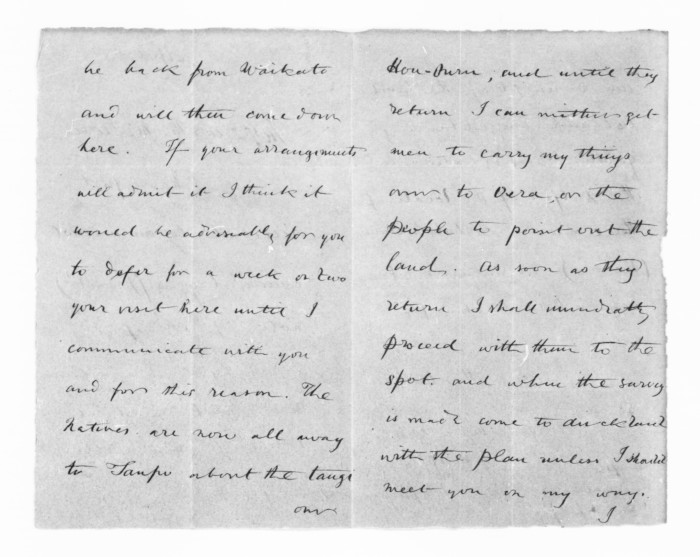 be back from Waikato
and will then come down
here. If your arrangements
will admit it I think it
would be advisable for you
to defer for a week or two
your visit here until I
communicate with you
and for this reason. The
Natives are now all away
to Taupo about the tangi
over
Hou-Duru, and until they
return I can neither get
men to carry my things
over to Oera, or the
people to point out the
land. As soon as they
return I shall immediately
proceed with them to the
spot. and when the survey
is made come to Auckland
with the plan unless I should
meet you on my way.
I